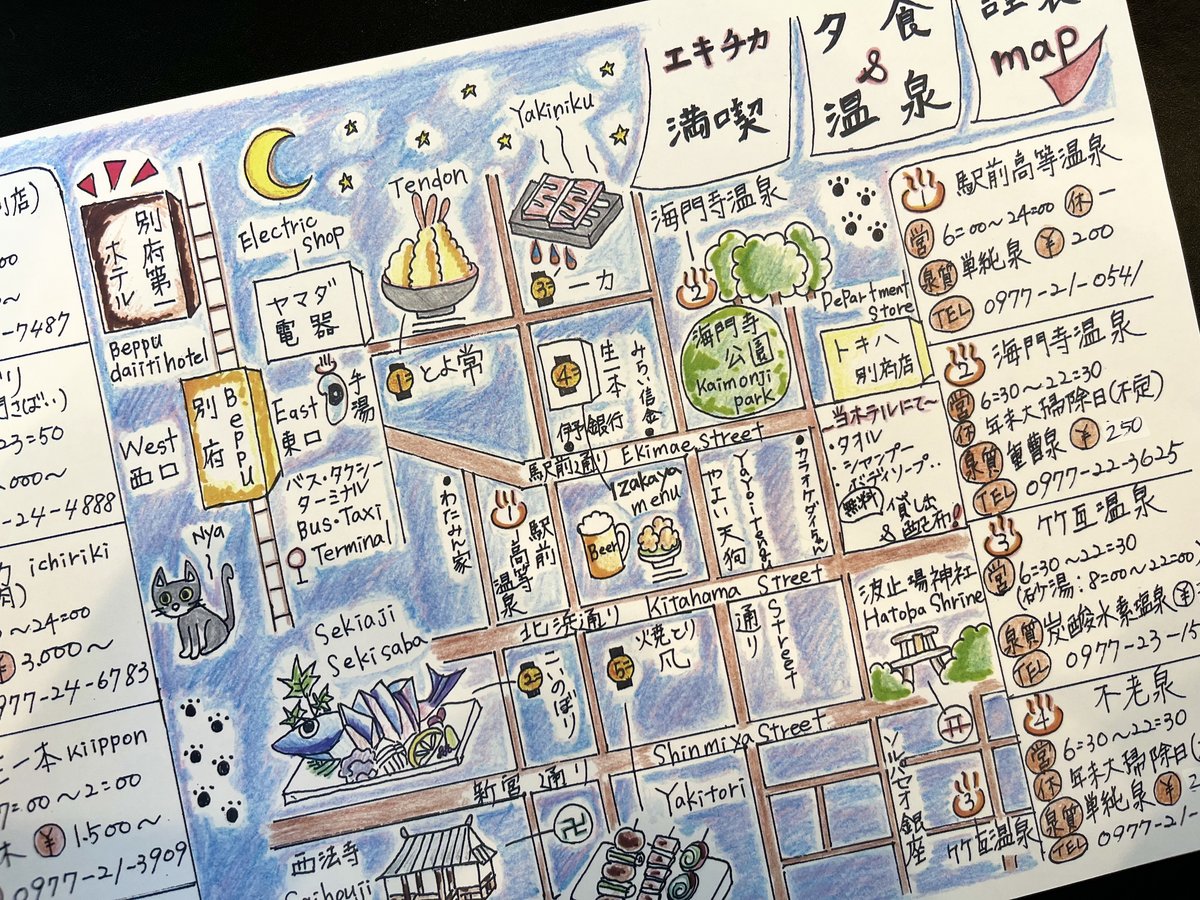 エキチカ
満喫
夕食
&
温泉
map
別府第一
ホテル
Beppu
daiiti hotel
-7487
23=50
-24-4888
ichiriki
~24=00
¥ 3.000~
0977-24-6783
生一本 Kiippon
7=00~2=00
¥ 1.500~
0977-21-3909
Electric
Shop
ヤマダ
電器
Tendon
1 とよ常
Yakiniku
3 一力
4 生一本
みらい信金
伊予銀行
海門寺温泉
2
海門寺
公園
Kaimonji
park
Department
Store
トキハ
別府店
当ホテルにて~
・タオル
・シャンプー
・ボディソープ..
無料 貸し出
& 配布!
West
西口
別府
Beppu
East
東口
手湯
バス・タクシー
ターミナル
Bus・Taxi
Terminal
Nya
駅前通り Ekimae Street
わたみん家
1 駅前
高等
温泉
Izakaya
menu
Beer
やよい天狗
Yayoitengu
カラオケダイちゃん
北浜通り Kitahama Street
Sekiaji
Sekisaba
2 こいのぼり
5 火焼とり
爪
通り
Street
波止場神社
Hatoba Shrine
新宮通り Shinmiya Street
西法寺
Saihouji
卍
Yakitori
ソルパセオ銀座
3
竹瓦温泉
1 駅前高等温泉
営 6=00~24=00 休 ー
泉質 単純泉 ¥ 200
TEL 0977-21-0541
2 海門寺温泉
営 6=30~22=30
休 年末大掃除日(不定)
泉質 重曹泉 ¥ 250
TEL 0977-22-3625
3 竹瓦温泉
営 6=30~22=30
(砂湯:8=00~22=00)
泉質 炭酸水素塩泉 ¥
TEL 0977-23-15
4 不老泉
営 6=30~22=30
休 年末大掃除日
泉質 単純泉 ¥ 2
TEL 0977-21-